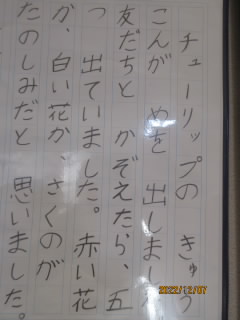 チューリップの きゅう
こんが めを 出しまし
友だちと かぞえたら、五
つ 出ていました。赤い花
か、白い花か、さくのが
たのしみだと 思いました。
2022/12/07